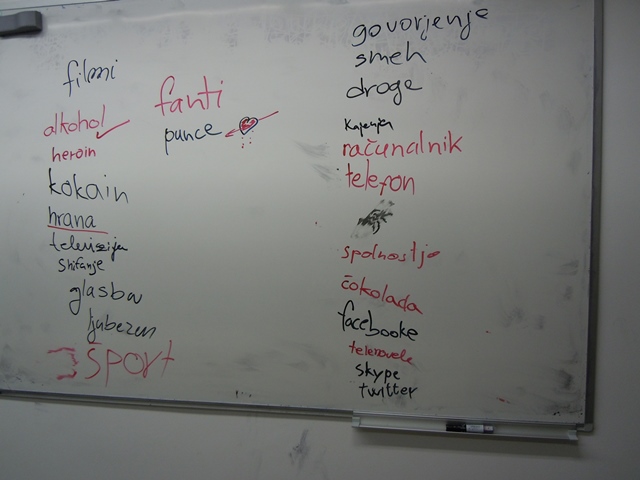 filmi
alkohol
heroin
kokain
hrana
televizija
šnifanje
glasba
ljubezen
šport
fanti
punce
govorjenje
smeh
droge
kajenje
računalnik
telefon
spolnost
čokolada
facebooke
telenovele
skype
twitter